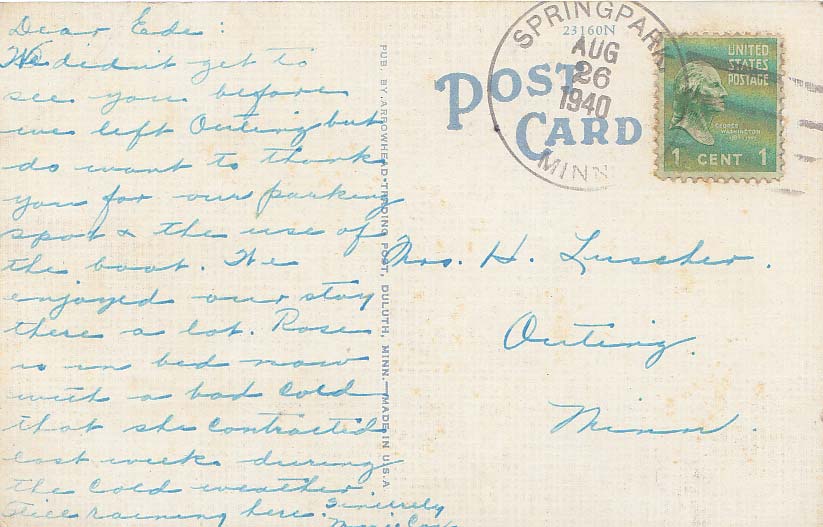 Dear Ede:
We didn't get to
see you before
we left Outing but
do want to thank
you for our parking
spot & the use of
the boat. We
enjoyed our stay
there a lot. Rose
is in bed now
with a bad cold
that she contracted
last week during
the cold weather.
Still raining here.
Sincerely
PUB. BY ARROWHEAD TRADING POST, DULUTH, MINN.—MADE IN U.S.A.
23160N
POST
CARD
SPRINGPARK
AUG
26
1940
MINN
UNITED
STATES
POSTAGE
GEORGE
WASHINGTON
1 CENT 1
Mrs. H. Luscher.
Outing.
Minn.